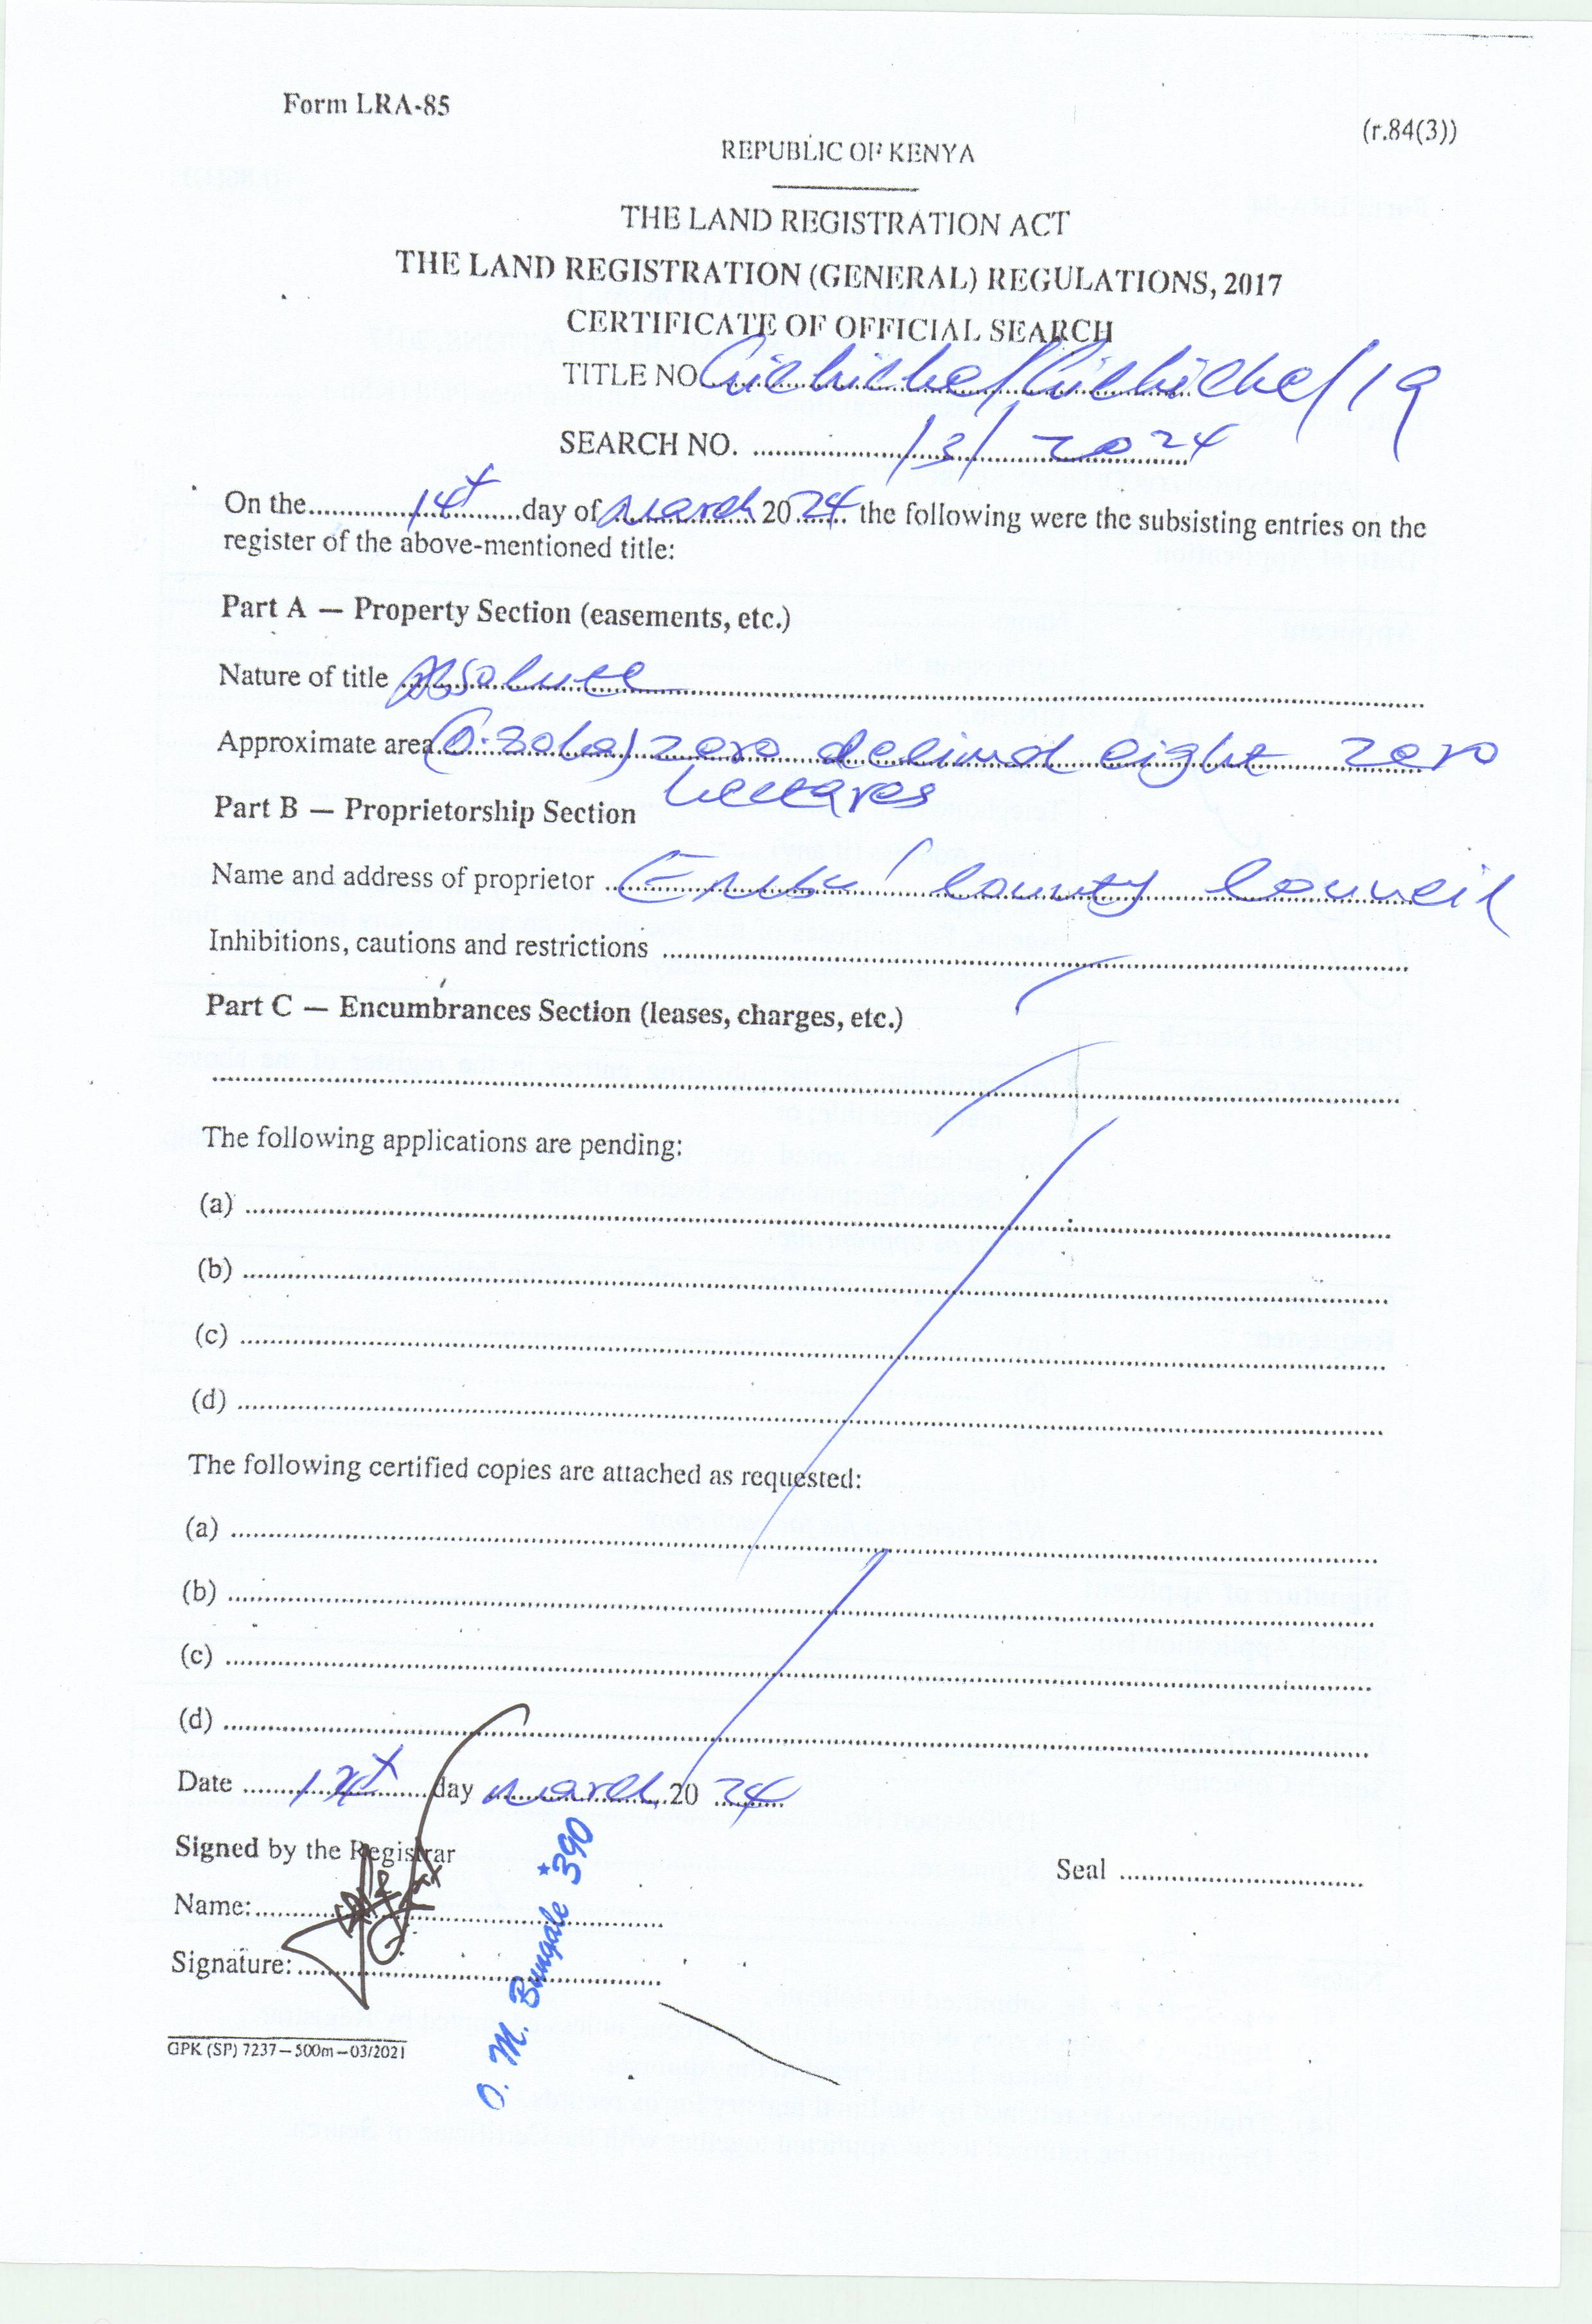 Form LRA-85
(r.84(3))
REPUBLIC OF KENYA
THE LAND REGISTRATION ACT
THE LAND REGISTRATION (GENERAL) REGULATIONS, 2017
CERTIFICATE OF OFFICIAL SEARCH
TITLE NO. Gichiche/Gichiche/19
SEARCH NO. /3/2024
On the 14th day of March 2024 the following were the subsisting entries on the
register of the above-mentioned title:
Part A — Property Section (easements, etc.)
Nature of title Absolute
Approximate area (0.80ha) zero decimal eight zero
hectares
Part B — Proprietorship Section
Name and address of proprietor Embu County Council
Inhibitions, cautions and restrictions
Part C — Encumbrances Section (leases, charges, etc.)
The following applications are pending:
(a)
(b)
(c)
(d)
The following certified copies are attached as requested:
(a)
(b)
(c)
(d)
Date day March, 2024
Signed by the Registrar
Seal
Name:
Signature:
O. M. Bungale *390
GPK (SP) 7237—500m—03/2021